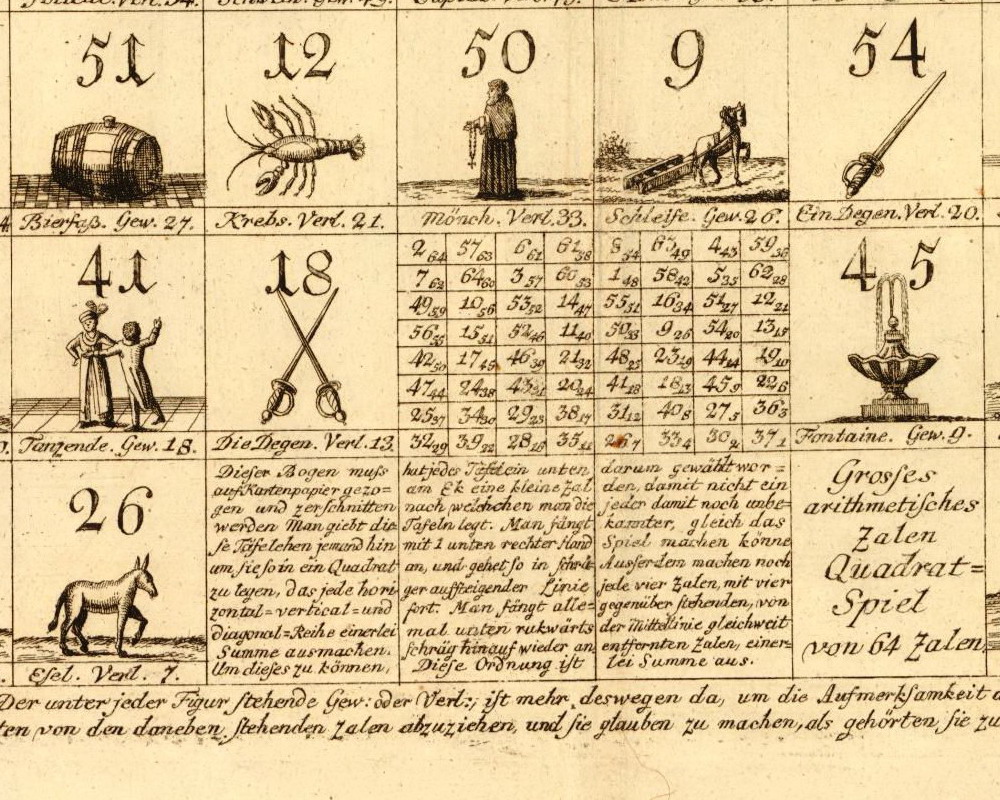 Verl. 54.
51 12 50 9 54
Bierfaß. Gew. 27. Krebs. Verl. 21. Mönch. Verl. 33. Schleife. Gew. 26. Ein Degen. Verl. 20.
41 18 45
2 64 57 63 6 61 61 58 8 54 63 49 4 43 59 36
7 62 64 60 3 57 60 53 1 48 58 42 5 35 62 28
49 59 10 56 53 52 14 47 55 51 16 34 51 27 12 21
56 55 15 51 52 46 11 40 50 33 9 26 54 20 13 15
42 50 17 45 46 39 21 32 48 25 23 19 44 14 19 10
47 44 24 38 43 31 20 24 41 18 18 13 45 9 22 6
25 37 34 30 29 23 38 17 31 12 40 8 27 5 36 3
32 29 39 22 28 16 35 11 26 7 33 4 30 2 37 1
Tanzende. Gew. 18. Die Degen. Verl. 13. Fontaine. Gew. 9.
26
Esel. Verl. 7.
Dieser Bogen muss
auf Kartenpapier gezo=
gen und zerschnitten
werden Man giebt die=
se Täfelchen jemand hin
um, sie so in ein Quadrat
zu legen, das jede hori
zontal=vertical=und
diagonal=Reihe einerlei
Summe ausmachen.
Um dieses zu können,
hat jedes Täfelein unten
am Ek eine kleine Zal
nach welchen man die
Tafeln legt. Man fängt
mit 1 unten rechter Hand
an, und gehet so in schrä=
ger aufsteigender Linie
fort. Man fängt alle=
mal unten rukwärts
schräg hinauf wieder an
Diese Ordnung ist
darum gewählt wor=
den, damit nicht ein
jeder damit noch unbe=
kannter, gleich das
Spiel machen könne
Ausserdem machen noch
jede vier Zalen, mit vier
gegenüber stehenden, von
der Mittellinie gleichweit
entfernten Zalen, einer=
lei Summe aus.
Grosses
arithmetisches
Zalen
Quadrat=
Spiel
von 64 Zalen
Der unter jeder Figur stehende Gew: oder Verl:, ist mehr deswegen da, um die Aufmerksamkeit
ten von den daneben stehenden Zalen abzuziehen, und sie glauben zu machen, als gehörten sie zu